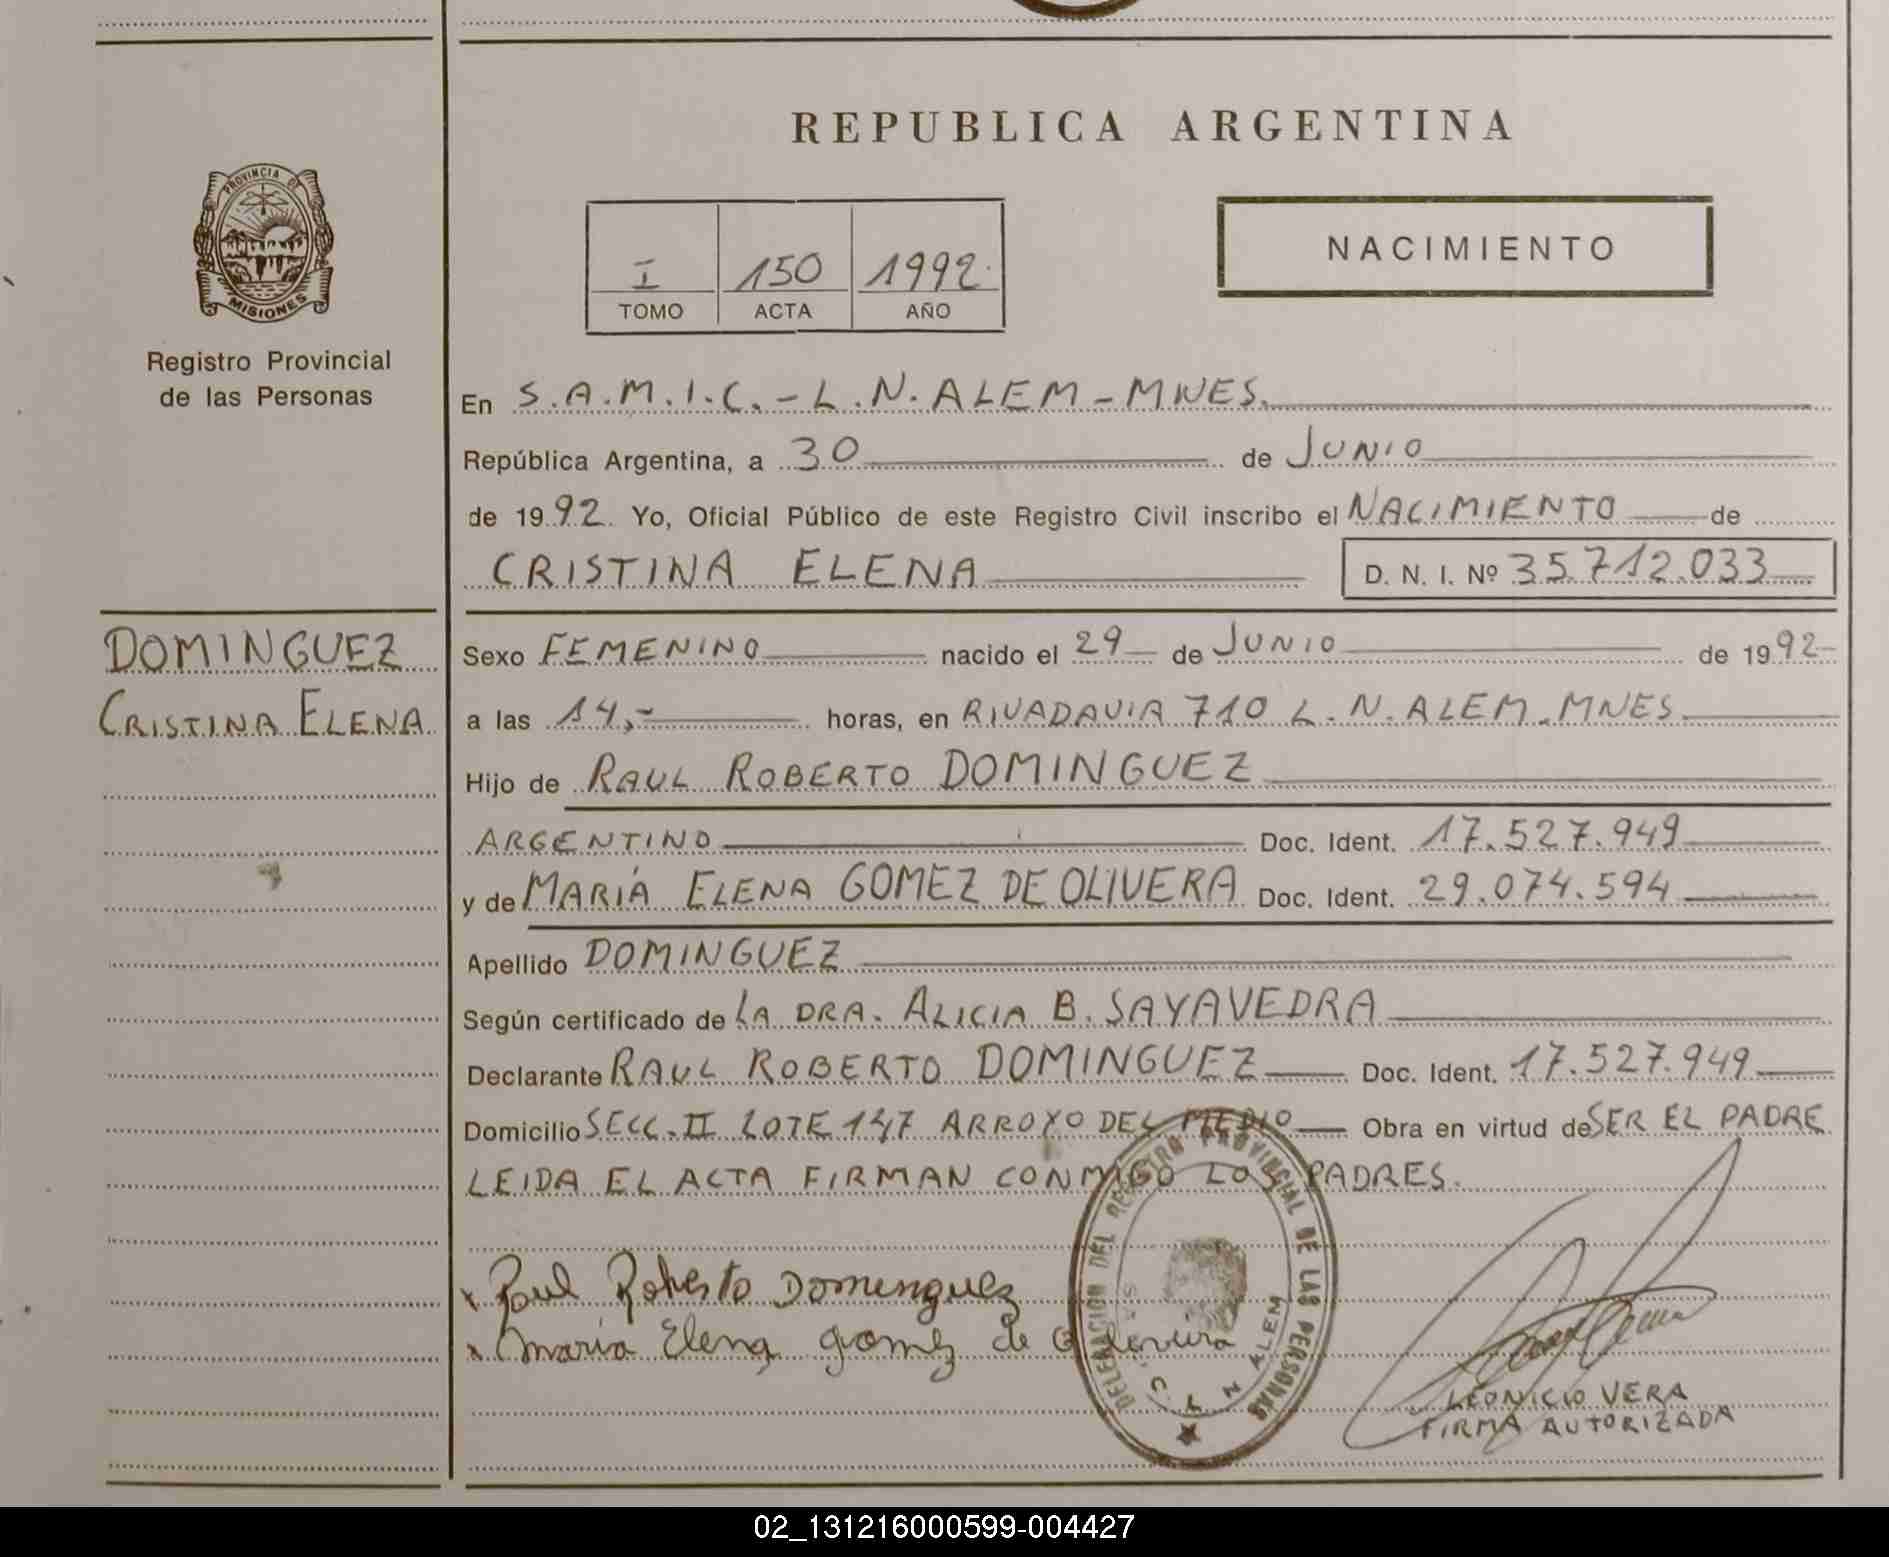 REPUBLICA ARGENTINA
PROVINCIA DE
MISIONES
Registro Provincial
de las Personas
I 150 1992
TOMO ACTA AÑO
NACIMIENTO
En S.A.M.I.C. - L.N. ALEM - MNES.
República Argentina, a 30 de JUNIO
de 1992 Yo, Oficial Público de este Registro Civil inscribo el NACIMIENTO de
CRISTINA ELENA D. N. I. Nº 35.712.033
DOMINGUEZ
CRISTINA ELENA
Sexo FEMENINO nacido el 29 de JUNIO de 1992
a las 14,- horas, en RIVADAVIA 710 L.N. ALEM. MNES
Hijo de RAUL ROBERTO DOMINGUEZ
ARGENTINO Doc. Ident. 17.527.949
y de MARÍA ELENA GOMEZ DE OLIVERA Doc. Ident. 29.074.594
Apellido DOMINGUEZ
Según certificado de LA DRA. ALICIA B. SAYAVEDRA
Declarante RAUL ROBERTO DOMINGUEZ Doc. Ident. 17.527.949
Domicilio SECC. II LOTE 147 ARROYO DEL MEDIO Obra en virtud de SER EL PADRE
LEIDA EL ACTA FIRMAN CONMIGO LOS PADRES.
x Raul Roberto Domenguez
x maria Elena gomez de
DELEGACION DEL REGISTRO PROVINCIAL DE LAS PERSONAS
L N ALEM
LEONICIO VERA
FIRMA AUTORIZADA
02_131216000599-004427